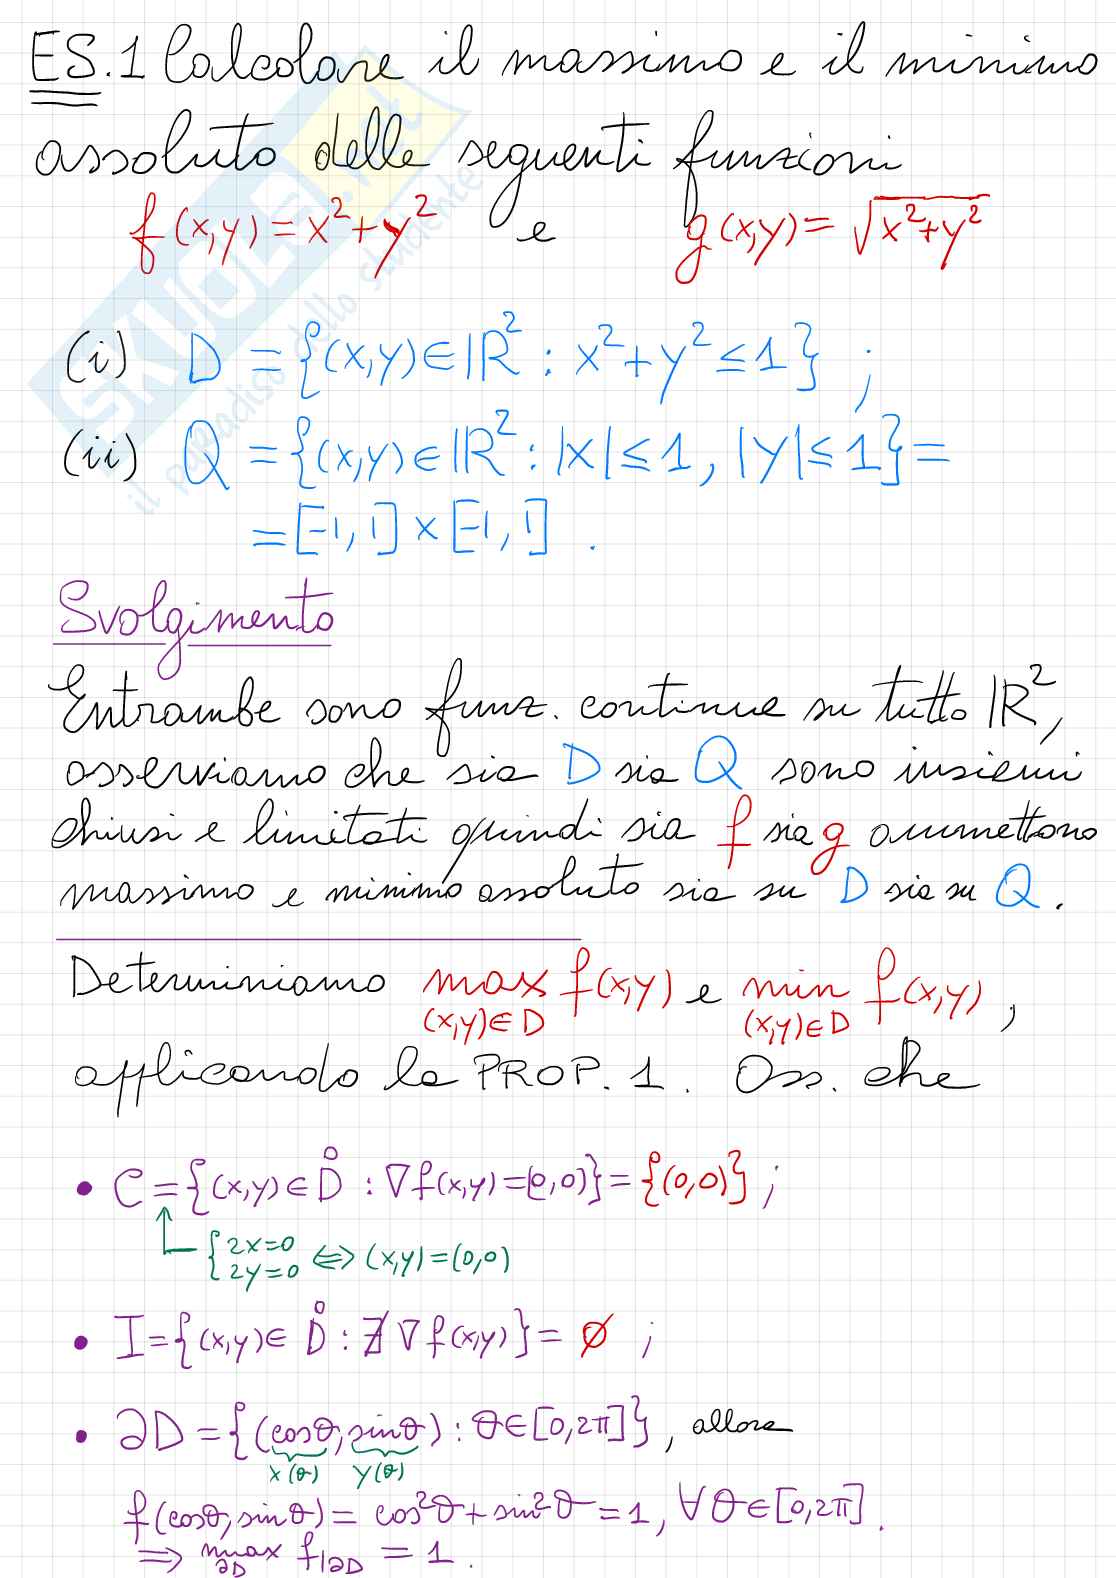 ES.1 Calcolare il massimo e il minimo
assoluto delle seguenti funzioni
f(x,y)=x²+y² e g(x,y)=√(x²+y²)
(i) D = {(x,y)∈ℝ² : x²+y² ≤ 1} ;
(ii) Q = {(x,y)∈ℝ² : |x| ≤ 1, |y| ≤ 1} =
= [-1,1] × [-1,1] .
Svolgimento
Entrambe sono funz. continue su tutto ℝ²,
osserviamo che sia D sia Q sono insiemi
chiusi e limitati quindi sia f sia g ammettono
massimo e minimo assoluto sia su D sia su Q.
Determiniamo max f(x,y) e min f(x,y) ,
(x,y)∈D (x,y)∈D
applicando la PROP. 1. Oss. che
• C = {(x,y)∈D̊ : ∇f(x,y)=(0,0)} = {(0,0)} ;
{2x=0
2y=0 ⇔ (x,y)=(0,0)
• I = {(x,y)∈ D̊ : ∄ ∇f(x,y)} = ∅ ;
• ∂D = {(cosθ, sinθ) : θ∈[0,2π]} , allora
x(θ) y(θ)
f(cosθ, sinθ) = cos²θ + sin²θ = 1, ∀θ∈[0,2π].
⇒ max f|∂D = 1.
∂D
SKUOLA.net
il paradiso dello studente